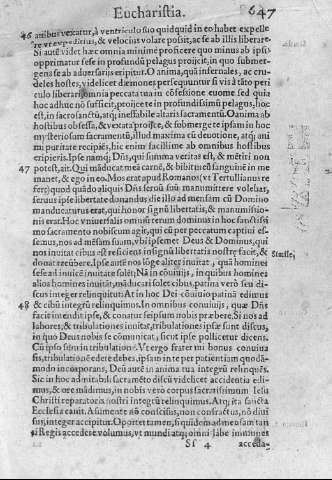 Eucharistia. 647
46 artibus vexatur, à ventriculo suo quidquid in eo habet expelle
re vt expeditius, & velocius volare possit, ac se ab illis liberare
Si autẽ videt hæc omnia minimè proficere quo minus ab ipsis
opprimatur sese in profundũ pelagus projicit, in quo submer-
gens se ab aduersariis eripitur. O anima, quã infernales, ac cru-
deles hostes, videlicet dæmones persequuntur si vis à tãto peri
culo liberari omnia peccata tua in cõfessione euome sed quia
hoc adhuc nõ sufficit, projice te in profundissimũ pelagus, hoc
est, in sacrosanctũ, atq; ineffabile altaris sacramentũ. O anima ab
hostibus obsessa, & vexata prostre, & submerge te ipsam in hoc
mysteriosum sacramentũ, illud maxima cũ deuotione, atq; ani
mi puritate recipiẽs, hic enim facillime ab omnibus hostibus
eripieris. Ipse namq; Dñs, qui summa veritas est, & mẽtiri non
47 potest, ait. Qui mãducat meã carnẽ, & bibit meũ sanguinẽ in me
manet, & ego in eo. Mos erat apud Romanos (vt Tertullianus re
fert) quod quãdo aliquis Dñs seruũ suũ manumittere volebat,
seruus ipse libertate donandus die illo ad mensam cũ Domino
manducaturus erat, qui honor signũ libertatis, & manumissio-
nis erat. Hoc vniuersalis omniũ rerum dominus in hoc sanctissi
mo sacramento nobiscum agit, qui cũ per peccatum captiui es-
semus, nos ad mẽsam suam, vbi ipsemet Deus & Dominus, qui
nos inuitat cibus est reficiens in signũ libertatis nostræ facit, &
donat recũbere. Ipse autẽ nos lõge aliter inuitat, quã homines
sese ad inuicẽ inuitate solẽt; Nã in cõuiuijs, in quibus homines
alios homines inuitãt, mãducari solet cibus, patina verò seu di-
scus integer relinquitur. At in hoc Dei cõuiuio patinã edimus
48 & cibũ integrũ relinquimus. In omnibus conuiuijs, quæ Dñs
facit inuendit ipse, & conatur se ipsum nobis præbere. Si nos ad
labores, & tribulationes inuitat, tribulationes ipsæ sunt discus,
in quo Deus nobis se cõmunicat, sicut ipse pollicetur dicens.
Cũ ipso sũm in tribulatione. Vt ergo frater mi bonus conuiua
sis, tribulationẽ edere debes, ipsam in te per patientiam quodã-
modo incorporans, Deũ autẽ in anima tua integrũ relinquẽs.
Sic in hoc admirabili sacramẽto discũ videlicet accidentia edi-
mus, & ore mãdimus, in nobis verò corpus sacratissimum Iesu
Christi reparatoris nostri integrũ relinquimus. Atq; ita sancta
Ecclesia canit. A sumente nõ concisus, non confractus, nõ diui
sus, integer accipitur. Oportet tamen, si quidem ad mensam tan
ti Regis accedere volumus, vt mundi atq; omni labe immunes
Sf 4 acceda-